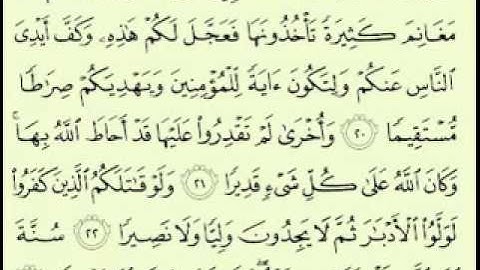 مَغَانِمَ كَثِيرَةً تَأْخُذُونَهَا فَعَجَّلَ لَكُمْ هَٰذِهِۦ وَكَفَّ أَيْدِىَ
ٱلنَّاسِ عَنكُمْ وَلِتَكُونَ ءَايَةً لِّلْمُؤْمِنِينَ وَيَهْدِيَكُمْ صِرَٰطًا
مُّسْتَقِيمًا ٢٠ وَأُخْرَىٰ لَمْ تَقْدِرُوا۟ عَلَيْهَا قَدْ أَحَاطَ ٱللَّهُ بِهَا ۚ
وَكَانَ ٱللَّهُ عَلَىٰ كُلِّ شَىْءٍ قَدِيرًا ٢١ وَلَوْ قَٰتَلَكُمُ ٱلَّذِينَ كَفَرُوا۟
لَوَلَّوُا۟ ٱلْأَدْبَٰرَ ثُمَّ لَا يَجِدُونَ وَلِيًّا وَلَا نَصِيرًا ٢٢ سُنَّةَ